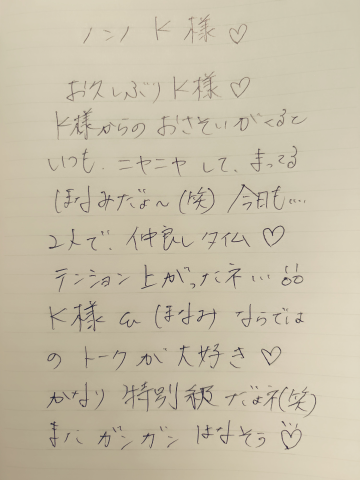 ノンノ K様♡
お久しぶりK様♡
K様からのおさそいがくると
いつも.ニヤニヤして、まってる
ほなみだょ〜(笑)今日も....
2人で.仲良しタイム♡
テンション上がったネ...
K様 ほなみならでは
のトークが大好き♡
かなり特別級だょネ(笑)
またガンガンはなそぅ♡